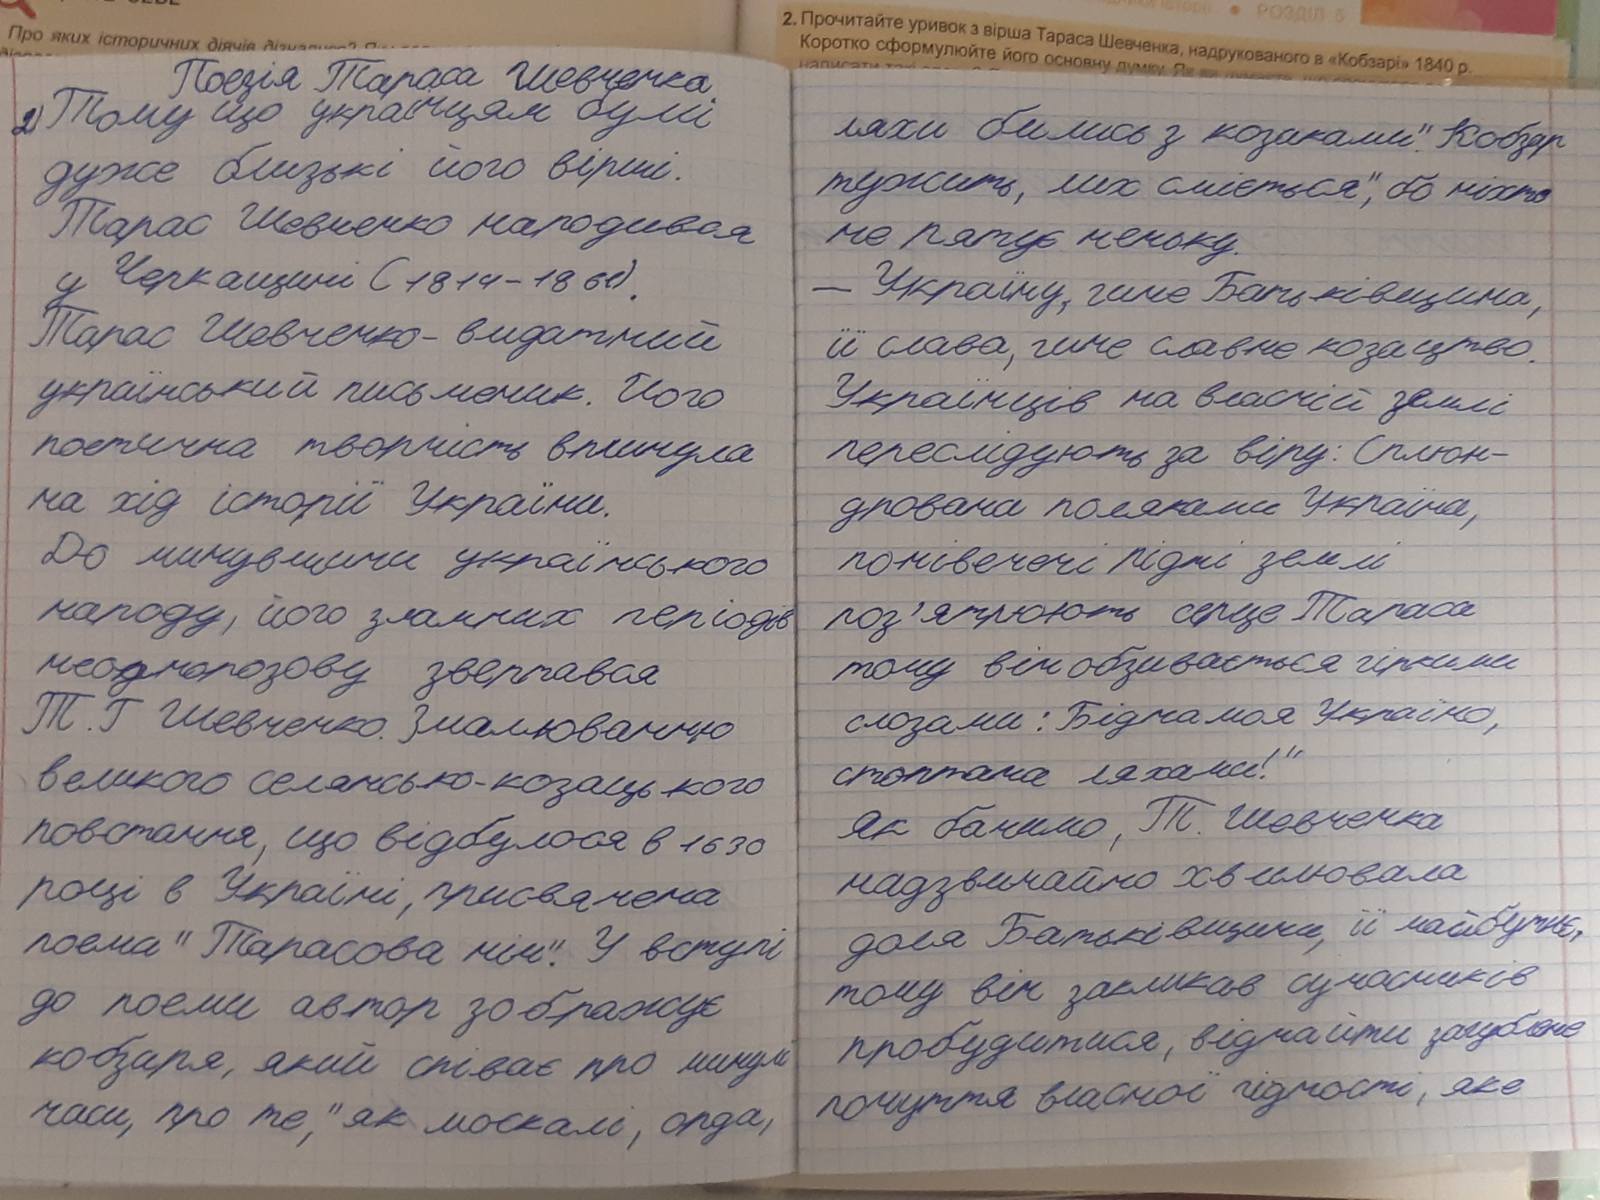 Про яких історичних діячів
РОЗДІЛ 5
2. Прочитайте уривок з вірша Тараса Шевченка, надрукованого в «Кобзарі» 1840 р.
Коротко сформулюйте його основну думку. Як ви думаєте, що
Поезія Тараса Шевченка
2) Тому що українцям булі
дуже близькі його вірші.
Тарас Шевченко народився
у Черкащині (1814-1861).
Тарас Шевченко - видатний
український письменик. Його
поетична творчість вплинула
на хід історії України.
До минувшини українського
народу, його зламних періодів
неодноразову звертався
Т. Г Шевченко. Змалюванню
великого селянсько-козацького
повстання, що відбулося в 1630
році в Україні, присвячена
поема "Тарасова ніч". У вступі
до поеми автор зображує
кобзаря, який співає про минулі
часи, про те, "як москалі, орда,
ляхи бились з козаками". Кобзар
тужить, лих сміється", бо ніхто
не рятує неньку.
- Україну, гине Батьківщина,
її слава, гине славне козацтво.
Українців на власній землі
переслідують за віру: Сплюн-
дрована поляками Україна,
понівечені рідні землі
роз'ятрюють серце Тараса
тому він обзивається гіркими
слозами: Бідна моя Україно,
стоптана ляхами!"
Як бачимо, Т. Шевченка
надзвичайно хвилювала
доля Батьківщини, її майбутнє,
тому він закликав сучасників
пробудитися, віднайти загублене
почуття власної гідності, яке